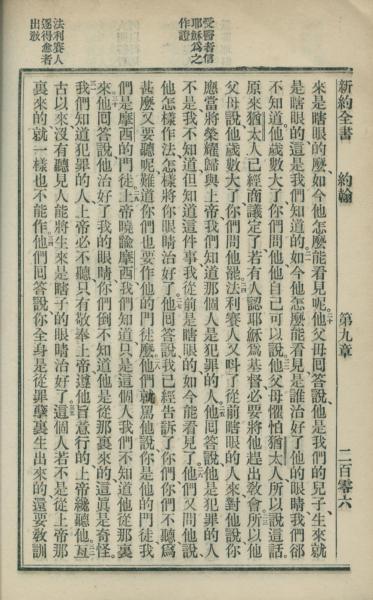 新約全書 約翰 第九章 二百零六
受醫者信
耶穌為之
作證
法利賽人
逐得愈者
出敎
來是瞎眼的麼、如今他怎麼能看見呢他父母囘答說、他是我們的兒子、生來就
是瞎眼的、這是我們知道的、如今他怎麼能看見是誰治好了他的眼睛我們都
不知道、他歲數大了、你們問他、他自己可以說、他父母懼怕猶太人、所以說這話、
原來猶太人已經商議定了、若有人認耶穌為基督、必要將他趕出敎會、所以他
父母說他歲數大了、你們問他罷、法利賽人又呌了從前瞎眼的人來、對他說、你
應當將榮耀歸與上帝、我們知道那個人是犯罪的人、他囘答說、他是犯罪的人
不是、我不知道、但知道這件事、我從前是瞎眼的、如今能看見了、他們又問他說、
他怎樣作法、怎樣將你眼睛治好了、他囘答說、我已經告訴了你們、你們不聽、為
甚麼又要聽呢、難道你們也要作他的門徒麼、他們就罵他說、你是他的門徒、我
們是摩西的門徒、上帝曉諭摩西、我們知道、只是這個人、我們不知道他從那裏
來、他囘答說、他治好了我的眼睛、你們倒不知道他是從那裏來的、這眞是奇怪、
我們知道犯罪的人、上帝必不聽、只有敬奉上帝遵他旨意行的、上帝纔聽他、亙
古以來、沒有聽見人能將生來是瞎子的眼睛治好了、這個人若不是從上帝那
裏來的、就一樣也不能作、他們囘答說、你全身是從罪孽裏生出來的、還要敎訓